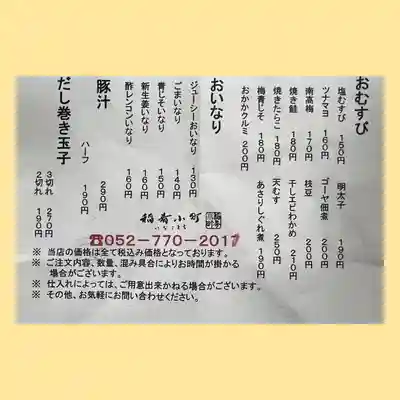 おむすび
塩むすび 150円
ツナマヨ 160円
南高梅 170円
焼き鮭 180円
焼きたらこ 180円
梅青じそ 180円
おかかクルミ 200円
明太子 190円
ゴーヤ佃煮 200円
枝豆 200円
干しエビとわかめ 210円
天むす 250円
あさりしぐれ煮 190円
おいなり
ジューシーおいなり 130円
ごまいなり 140円
青じそいなり 150円
新生姜いなり 160円
酢レンコンいなり 160円
豚汁 290円
ハーフ 190円
だし巻き玉子
3切れ 270円
2切れ 190円
稲荷小町
いなこまち
☎052-770-2017
※ 当店の価格は全て税込み価格となっております。
※ ご注文内容、数量、混み具合によりお時間が掛かる
場合がございます。
※ 仕入れによっては、ご用意出来かねる場合がございます。
※ その他、お気軽にお問い合わせください。